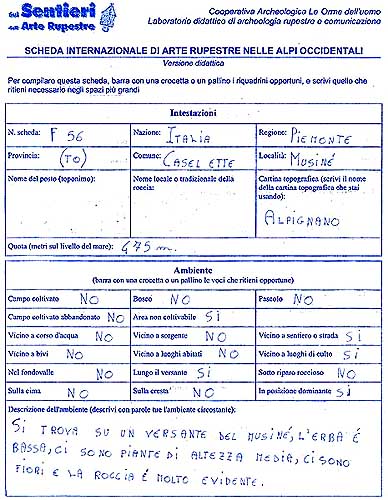 Sui Sentieri dell'Arte Rupestre
Cooperativa Archeologica Le Orme dell'uomo
Laboratorio didattico di archeologia rupestre e comunicazione
SCHEDA INTERNAZIONALE DI ARTE RUPESTRE NELLE ALPI OCCIDENTALI
Versione didattica
Per compilare questa scheda, barra con una crocetta o un pallino i riquadri opportuni, e scrivi quello che
ritieni necessario negli spazi più grandi
Intestazioni
N. scheda: F 56 Nazione: ITALIA Regione: PIEMONTE
Provincia: (TO) Comune: CASELETTE Località: MUSINÉ
Nome del posto (toponimo): Nome locale o tradizionale della roccia: Cartina topografica (scrivi il nome della cartina topografica che stai usando):
ALPIGNANO
Quota (metri sul livello del mare): 475 m.
Ambiente
(barra con una crocetta o un pallino le voci che ritieni opportune)
Campo coltivato NO Bosco NO Pascolo NO
Campo coltivato abbandonato NO Area non coltivabile SI
Vicino a corso d'acqua NO Vicino a sorgente NO Vicino a sentiero o strada SI
Vicino a bivi NO Vicino a luoghi abitati NO Vicino a luoghi di culto SI
Nel fondovalle NO Lungo il versante SI Sotto riparo roccioso NO
Sulla cima NO Sulla cresta NO In posizione dominante SI
Descrizione dell'ambiente (descrivi con parole tue l'ambiente circostante):
SI TROVA SU UN VERSANTE DEL MUSINÉ, L'ERBA É
BASSA, CI SONO PIANTE DI ALTEZZA MEDIA, CI SONO
FIORI E LA ROCCIA É MOLTO EVIDENTE.